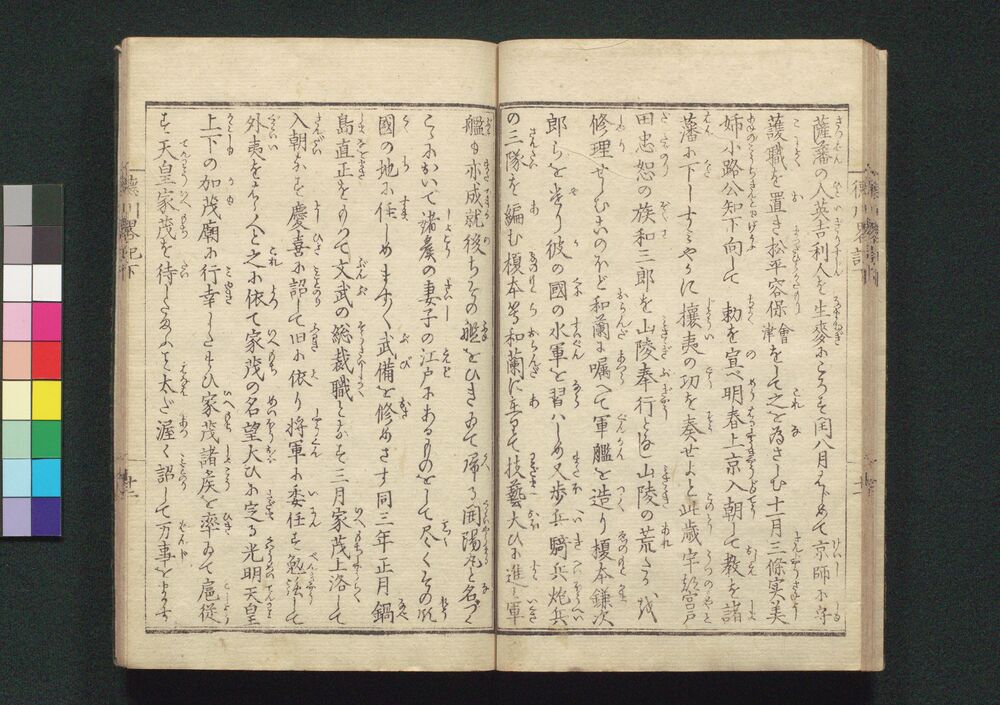 薩藩の人英吉利人を生麥にころす閏八月はじめて京師に守
護職を置き松平容保會津をして之を為さしむ十一月三條実美
姉小路公知下向して勅を宣べ明春上京入朝して教を諸
藩に下しすみやかに攘夷の功を奏せよと此歳宇都宮戸
田忠恕の族和三郎を山陵奉行となし山陵の荒さるを
修理せしむこのほど和蘭に嘱へて軍艦を造り榎本鎌次
郎らを遣り彼の國の水軍を習ハしめ又歩兵騎兵炮兵
の三隊を編む榎本等和蘭に在て技藝大ひに進ミ軍
艦も亦成就後ちその艦をひきゐて帰る開陽丸と名づく
こゝにおいて諸矦の妻子の江戸にあるものをして尽くその
國の地に住しめますます武備を修めさす同三年正月鍋
島直正をもつて文武の総裁職となす三月家茂上洛して
入朝す慶喜に詔して旧に依り将軍に委任す勉強して
外夷をはらへと之に依て家茂の名望大ひに定る光明天皇
上下の加茂廟に行幸したまひ家茂諸矦を率ゐて扈従
す天皇家茂を待したまふこと太だ渥く詔して万事をます
徳川畧記
十一
徳川畧記下
十二